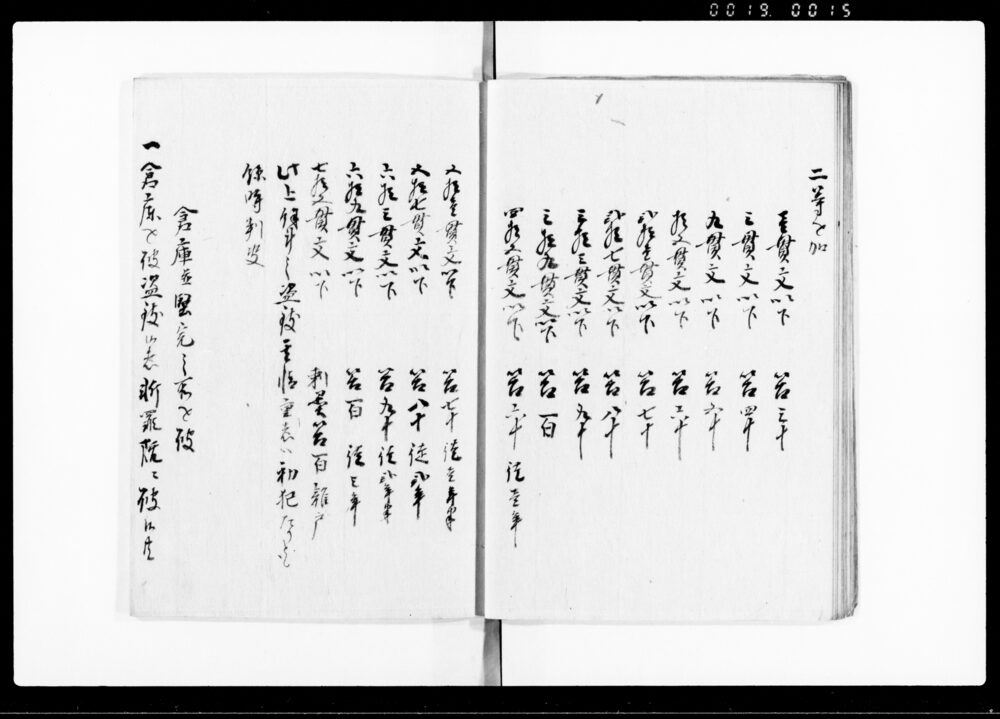 0019 0015
二等を加
壱貫文以下 笞三十
三貫文以下 笞四十
九貫文以下 笞五十
拾五貫文以下 笞六十
弐拾壱貫文以下 笞七十
弐拾七貫文以下 笞八十
三拾三貫文以下 笞九十
三拾九貫文以下 笞百
四拾五貫文以下 笞六十 徒壱年
五拾壱貫文以下 笞七十 徒壱年半
五拾七貫文以下 笞八十 徒弐年
六拾三貫文以下 笞九十 徒弐年半
六拾九貫文以下 笞百 徒三年
七拾五貫文以下 刺墨笞百雑戸
此上 之盗 重 ハ初犯
臨時判断
倉庫並堅 之所を破
一倉庫を破盗 者